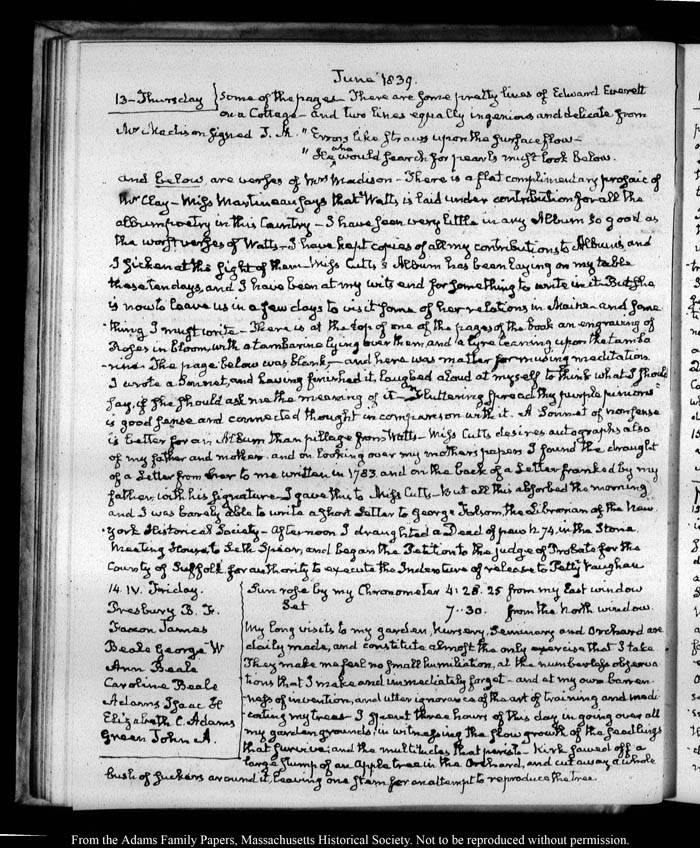 June 1839.
13 - Thursday } some of the pages - There are some pretty lines of Edward Everett
on a Cottage - and two lines equally ingenious and delicate from
Mr Madison signed J. M. "Errors like straws upon the surface flow -
"He who would search for pearls must look below.
and below are verses of Mrs Madison - There is a flat complimentary prosaic of
Mr Clay - Miss Martineau says that Watts is laid under contribution for all the
album poetry in this Country - I have seen very little in any Album so good as
the worst verses of Watts - I have kept copies of all my contributions to Albums, and
I sicken at the sight of them - Miss Cutts's Album has been laying on my table
these ten days, and I have been at my wits end for something to write in it - But she
is now to leave us in a few days to visit some of her relations in Maine - and some
-thing I must write - There is at the top of one of the pages of the book an engraving of
Roses in bloom, with a tambarine lying over them, and a lyre leaning upon the tamba
-rine - The page below was blank, - and here was matter for musing meditation
I wrote a Sonnet, and having finished it, laughed aloud at myself to think what I should
say, if she should ask me the meaning of it - "Fluttering spread thy purple pinions"
is good sense and connected thought in comparison with it. A Sonnet of nonsense
is better for an Album than pillage from Watts - Miss Cutts desires autographs also
of my father and mother. and on looking over my mothers papers I found the draught
of a Letter from her to me written in 1783. and on the back of a Letter franked by my
father, with his signature. I gave this to Miss Cutts - But all this absorbed the morning
and I was barely able to write a short Letter to George Folsom, the Librarian of the New.
-York Historical Society - Afternoon I draughted a Deed of pew N. 74, in the Stone
Meeting House, to Seth Spear, and began the Petition to the judge of Probate for the
County of Suffolk, for authority to execute the Indenture of release to Petty Vaughan
14. IV. Friday. Sun rose by my Chronometer 4: 28. 25 from my East window
Presbury B. F. Set 7..30. from the North window.
Faxon James My long visits to my garden, Nursery, Seminary and Orchard are
Beale George W daily made, and constitute almost the only exercise that I take
Ann Beale They make me feel no small humiliation, at the numberless observa
Caroline Beale tions that I make and immediately forget - and at my own barren-
Adams Isaac H ness of invention, and utter ignorance of the art of training and medi
Elizabeth C. Adams cating my trees I spent three hours of this day in going over all
Green John A. my garden grounds, in witnessing the slow growth of the seedlings
that survive; and the multitudes that perish - Kirk sawed off a
large stump of an Apple tree in the Orchard, and cut away a whole
bush of suckers around it, leaving one stem for an attempt to reproduce the tree.
From the Adams Family Papers, Massachusetts Historical Society. Not to be reproduced without permission.